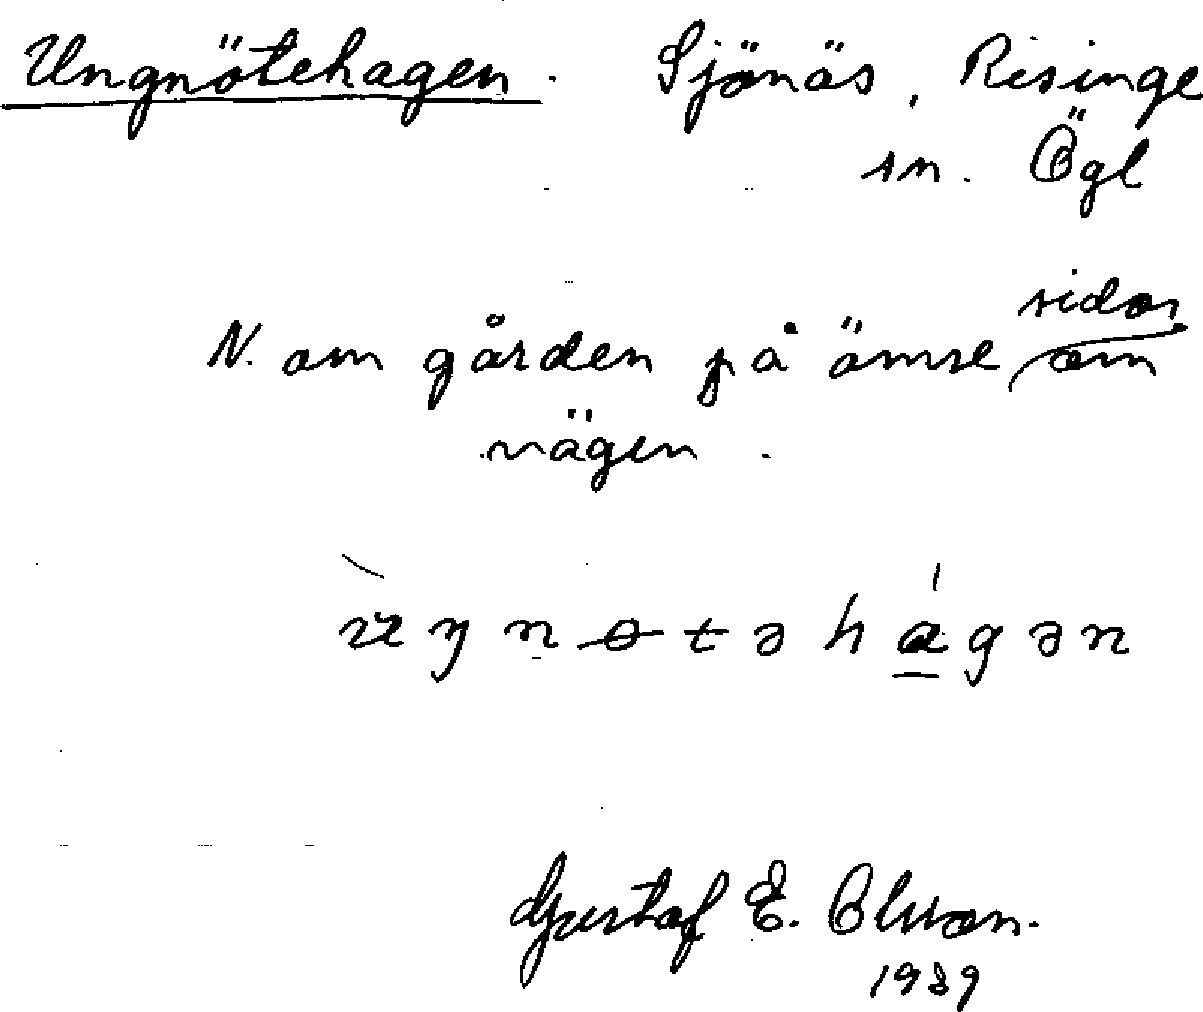 Ungnötehagen. Sjönäs, Risinge
sn. Ögl
sidor
N. om gården på ömse om
vägen.
Gustaf E. Olsson.
1939